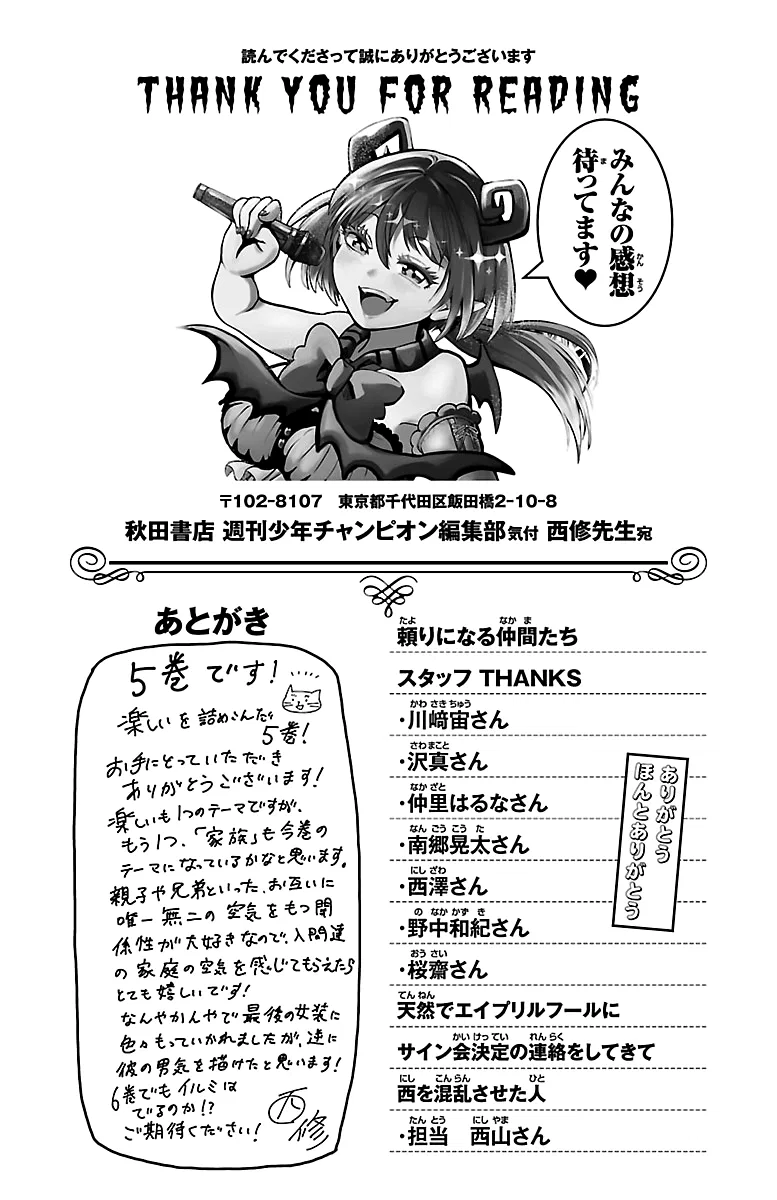 読んでくださって誠にありがとうございます
THANK YOU FOR READING
みんなの感想
待ってます♥
〒102-8107　東京都千代田区飯田橋2-10-8
秋田書店 週刊少年チャンピオン編集部気付 西修先生宛
あとがき
5巻です!
楽しいを詰めこんだ
5巻!
お手にとっていただき
ありがとうございます!
楽しいも1つのテーマですが、
もう1つ、「家族」も今巻の
テーマになっているかなと思います。
親子や兄弟といった、お互いに
唯一無二の空気をもつ関
係性が大好きなので、入間達
の家庭の空気を感じてもらえたら
とても嬉しいです!
なんやかんやで最後の女装に
色々もっていかれましたが、逆に
彼の男気を描けたと思います!
6巻でもイルミは
でるのか!?
ご期待ください!
西修
頼りになる仲間たち
スタッフ THANKS
・川﨑宙さん
・沢真さん
・仲里はるなさん
・南郷晃太さん
・西澤さん
・野中和紀さん
・桜齋さん
ありがとう
ほんとありがとう
天然でエイプリルフールに
サイン会決定の連絡をしてきて
西を混乱させた人
・担当　西山さん